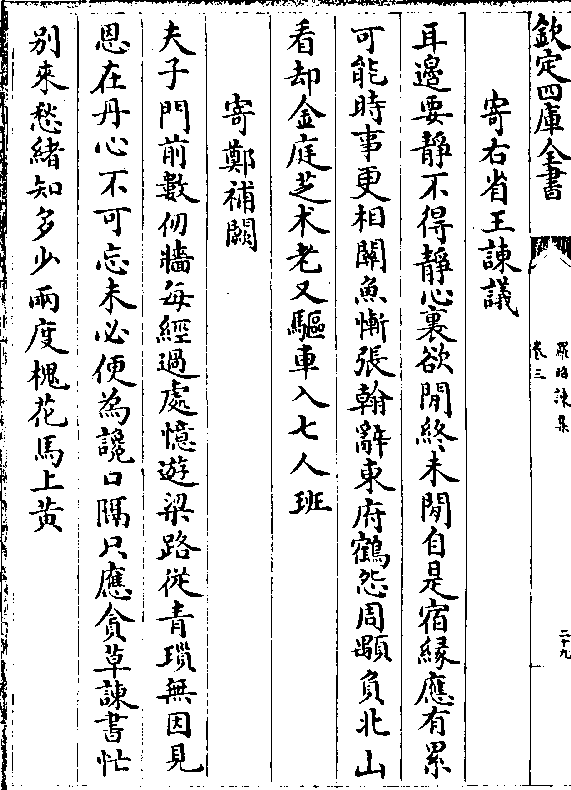 欽定四庫全書
羅昭諫集
卷三
二十九
寄右省王諫議
耳邊要靜不得靜心裏欲閒終未閒自是宿緣應有累
可能時事更相關魚慚張翰辭東府鶴怨周顒負北山
看却金庭芝术老又驅車入七人班
寄鄭補闕
夫子門前數仞牆每經過處憶遊梁路從青瑣無因見
恩在丹心不可忘未必便為讒口隔只應貪草諫書忙
別來愁緒知多少兩度槐花馬上黃